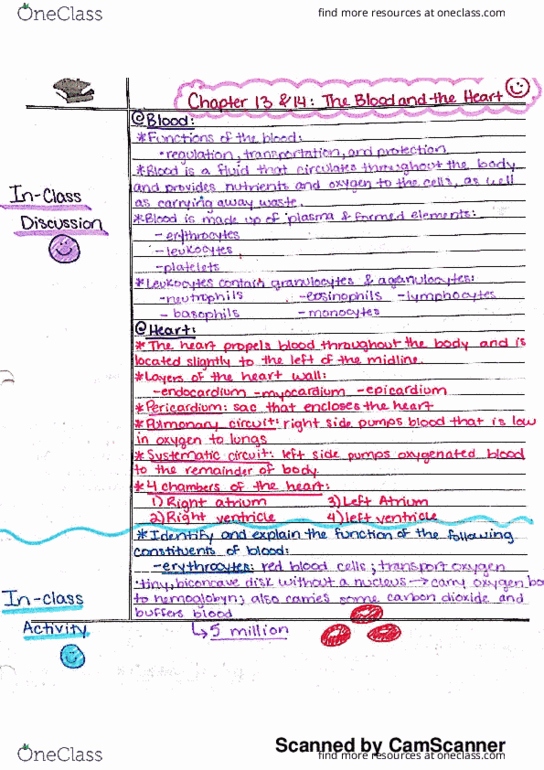 OneClass
find more resources at oneclass.com
Chapter 13 & 14: The Blood and the Heart
@Blood:
*Functions of the blood:
-regulation, transportation, and protection
*Blood is a fluid that circulates throughout the body
and provides nutrients and oxygen to the cells, as well
as carrying away waste.
In-Class
Discussion
*Blood is made up of plasma & formed elements:
-erythrocytes
-leukocytes
-platelets
*Leukocytes contain granulocytes & agranulocytes:
-neutrophils -eosinophils -lymphocytes
-basophils -monocytes
@Heart:
*The heart propels blood throughout the body and is
located slightly to the left of the midline.
*Layers of the heart wall:
-endocardium -myocardium -epicardium
*Pericardium: sac that encloses the heart
*Pulmonary circuit: right side pumps blood that is low
in oxygen to lungs
*Systematic circuit: left side pumps oxygenated blood
to the remainder of body
*4 chambers of the heart:
1) Right atrium 3) Left Atrium
2) Right ventricle 4) left ventricle
*Identify and explain the function of the following
constituents of blood:
-erythrocytes: red blood cells; transport oxygen
·tiny, biconcave disk without a nucleus → carry oxygen bo
to hemoglobyn; also carries some carbon dioxide and
buffers blood
↳ 5 million
In-class
Activity
Scanned by CamScanner
OneClass
find more resources at oneclass.com